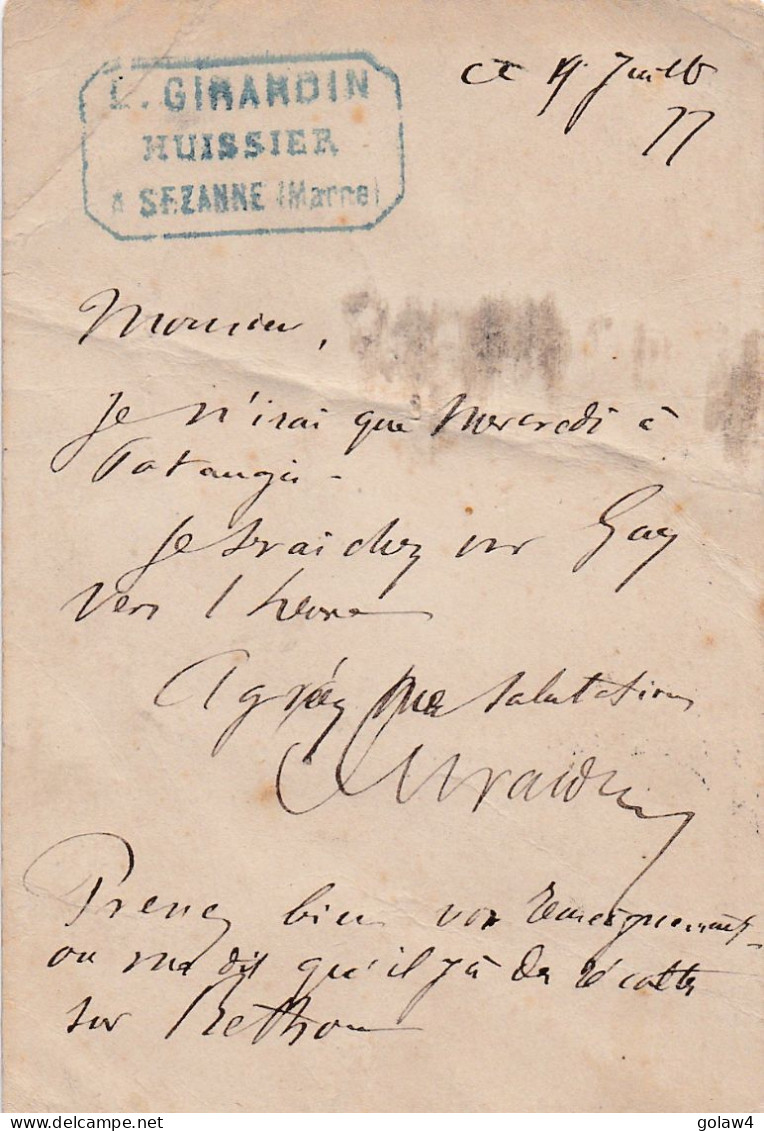 L. GIRARDIN
HUISSIER
A SEZANNE (Marne)
Ce 19 Juillet
77
Monsieur,
Je n'irai que Mercredi à
Potangis -
Je serai chez Mr Gay
vers 1 heure
Agréez mes salutations
Girardin
Prenez bien vos renseignements
on me dit qu'il y a des récoltes
sur Bethon
golaw4